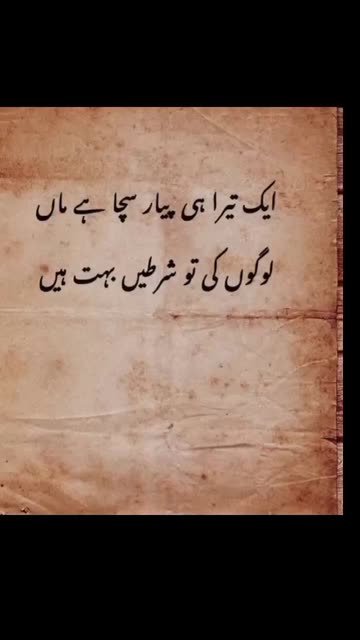 ایک تیرا ہی پیار سچا ہے ماں
لوگوں کی تو شرطیں بہت ہیں